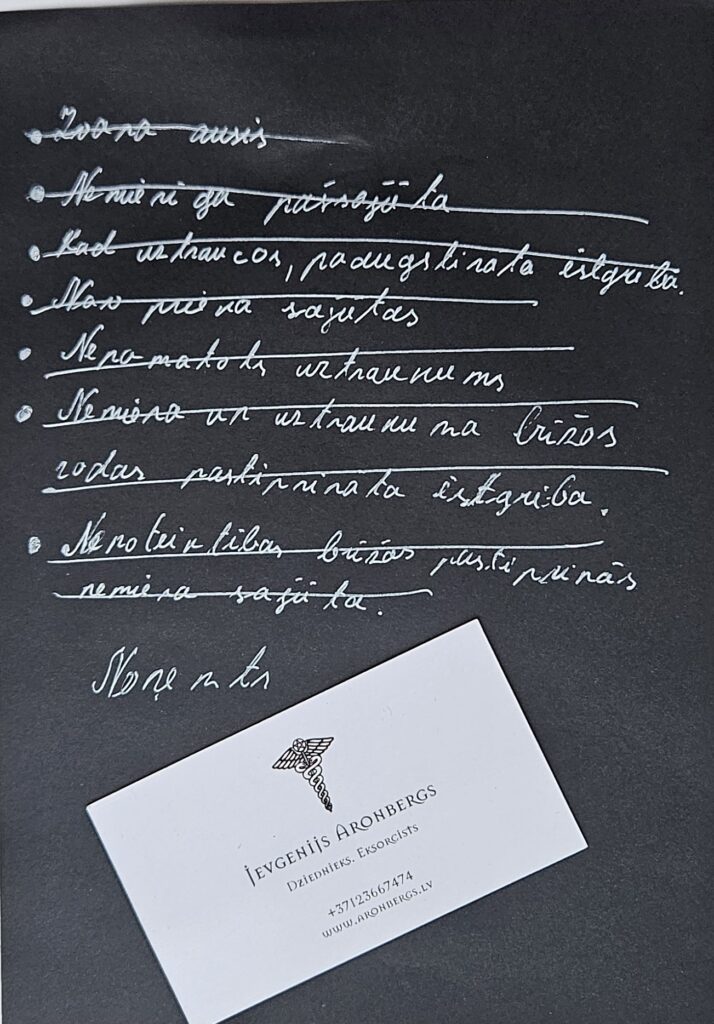 • Zvana ausis
• Nemierīga pašsajūta
• Kad uztraucos, paaugstināta ēstgriba.
• Nav miera sajūtas
• Nepamatots uztraukums
• Nemiera un uztraukuma brīžos
rodas pastiprināta ēstgriba.
• Nenoteiktības brīžos pastiprinās
nemiera sajūta.
Noņemts
Jevgenijs Aronbergs
Dziednieks. Eksorcists
+37123667474
www.aronbergs.lv